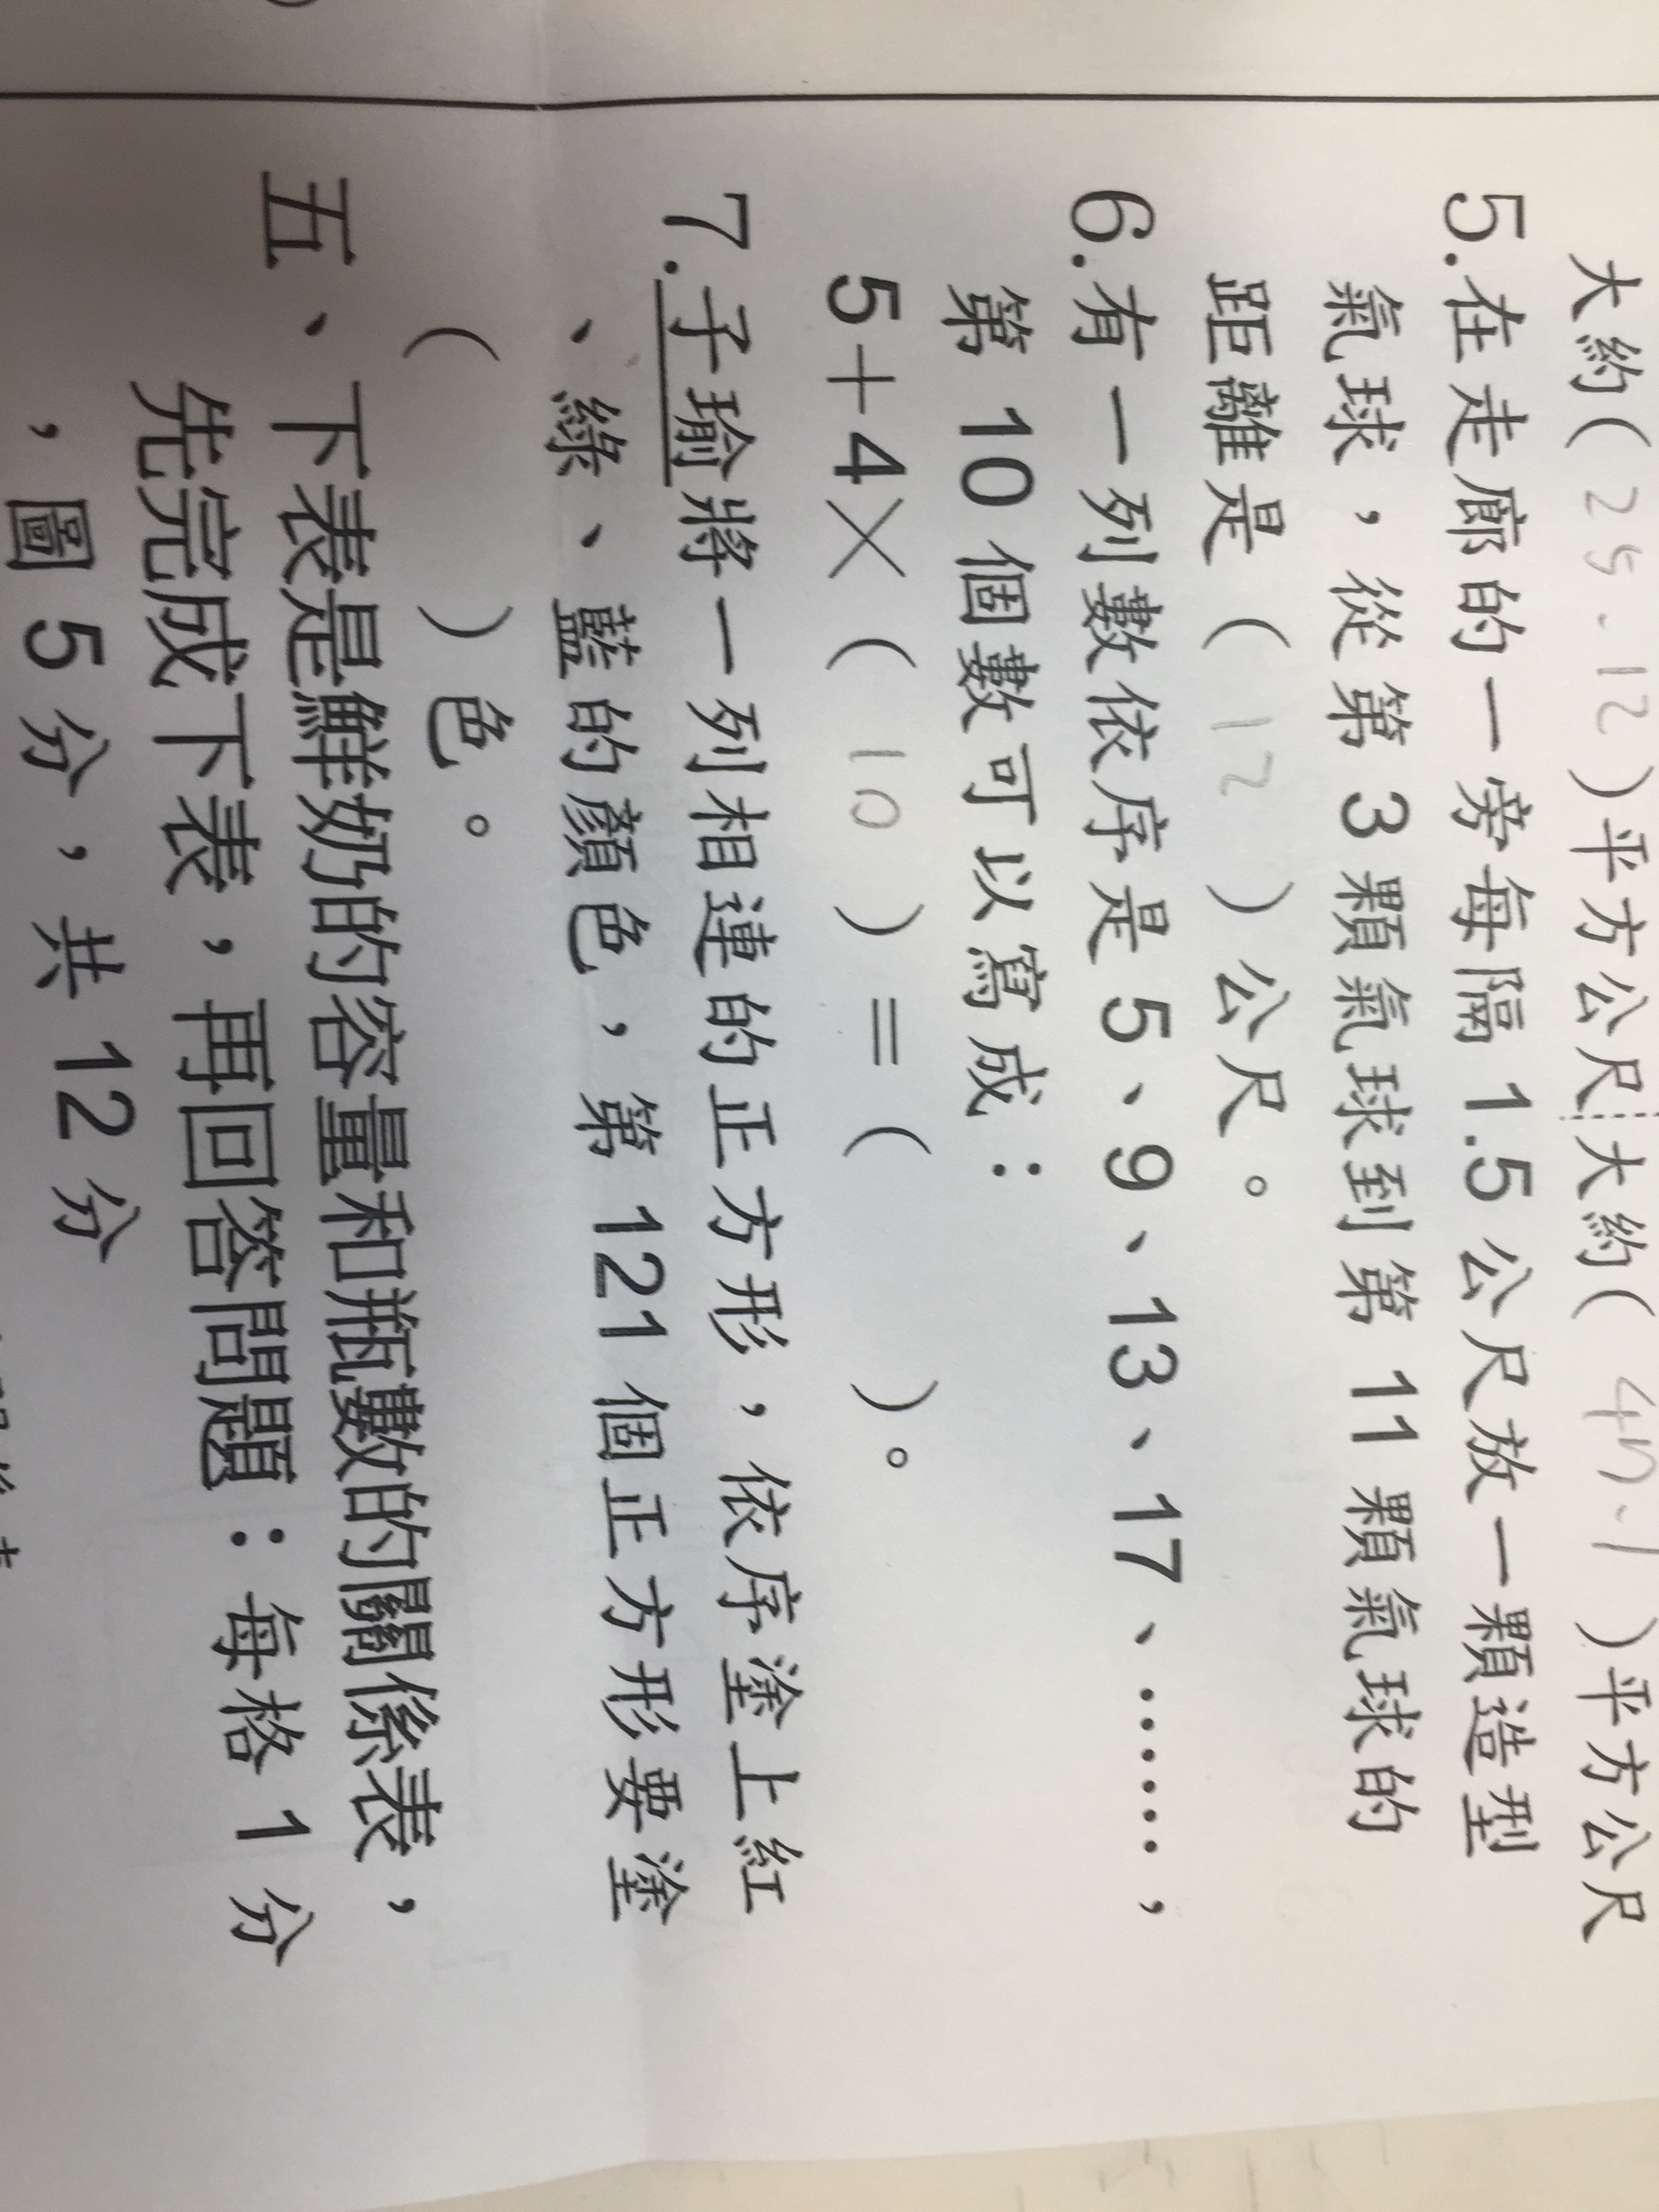 大約( 25.12 )平方公尺 大約( 47.1 )平方公尺
5.在走廊的一旁每隔 1.5 公尺放一顆造型
氣球，從第 3 顆氣球到第 11 顆氣球的
距離是（ 12 ）公尺。
6.有一列數依序是 5、9、13、17、……，
第 10 個數可以寫成：
5＋4×（ 10 ）＝（ ）。
7.子瑜將一列相連的正方形，依序塗上紅
、綠、藍的顏色，第 121 個正方形要塗
（ ）色。
五、下表是鮮奶的容量和瓶數的關係表，
先完成下表，再回答問題：每格 1 分
，圖 5 分，共 12 分